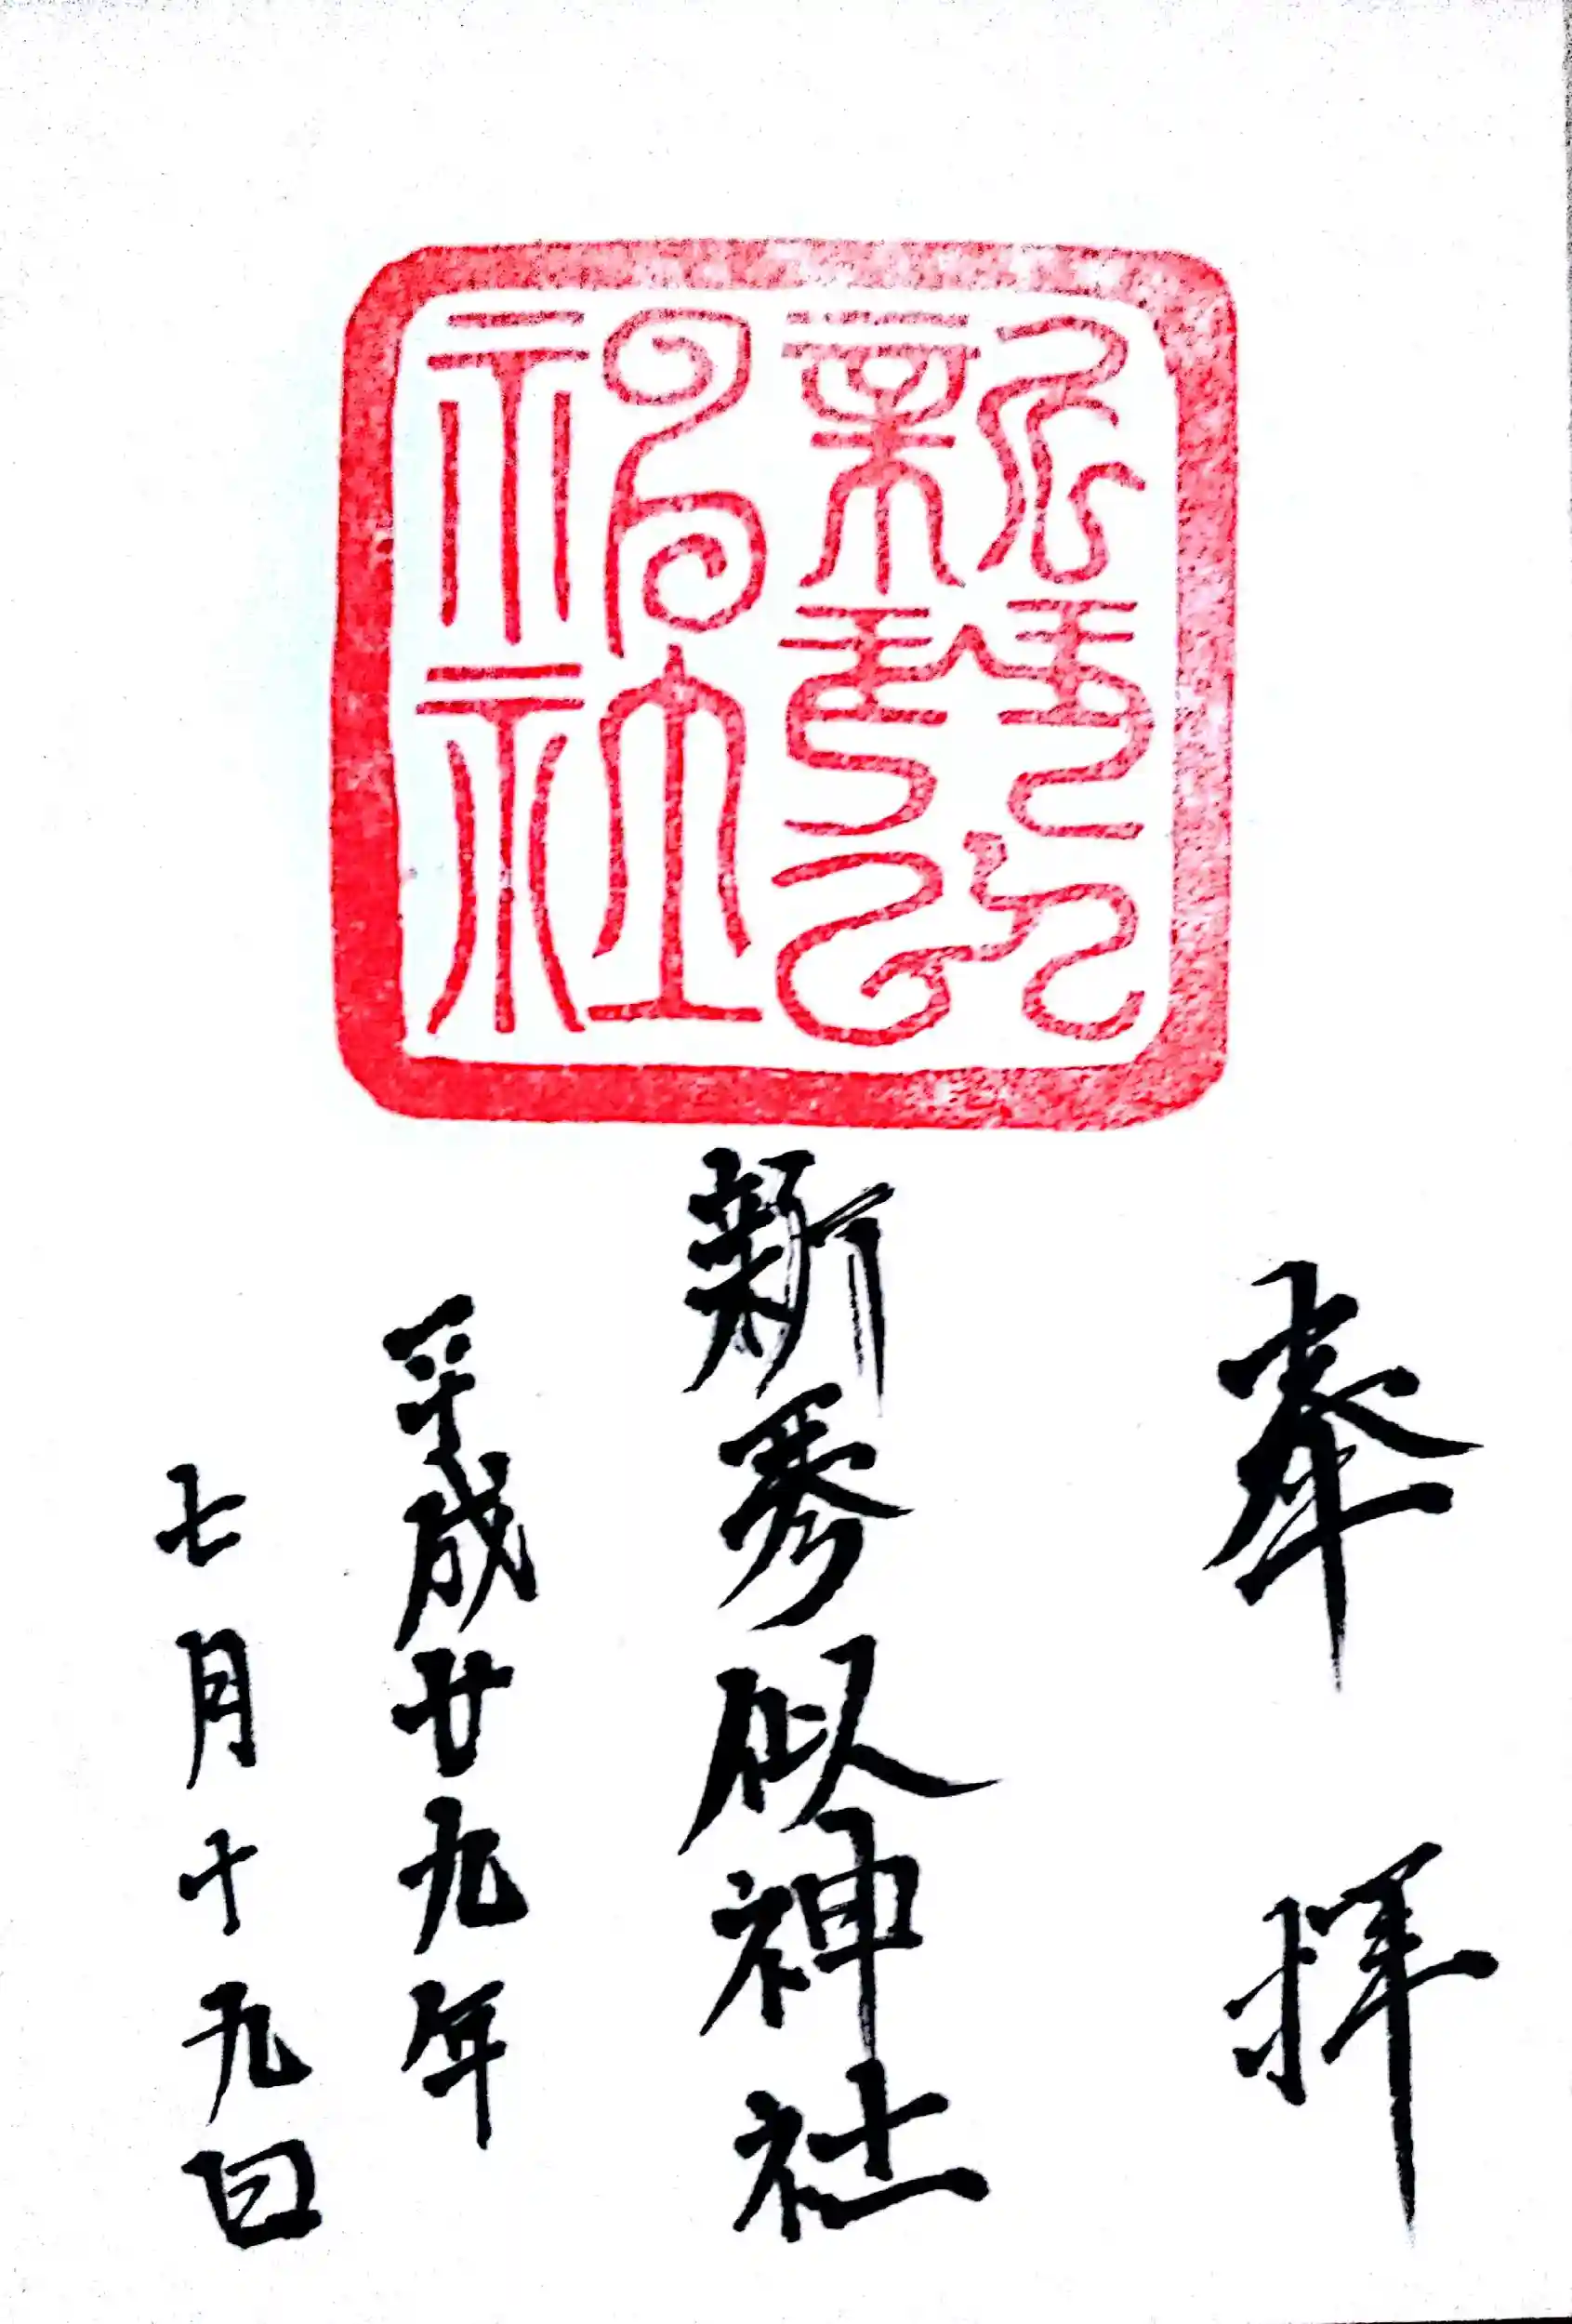 新琴似
神社
奉拝
新琴似神社
平成廿九年
七月十九日